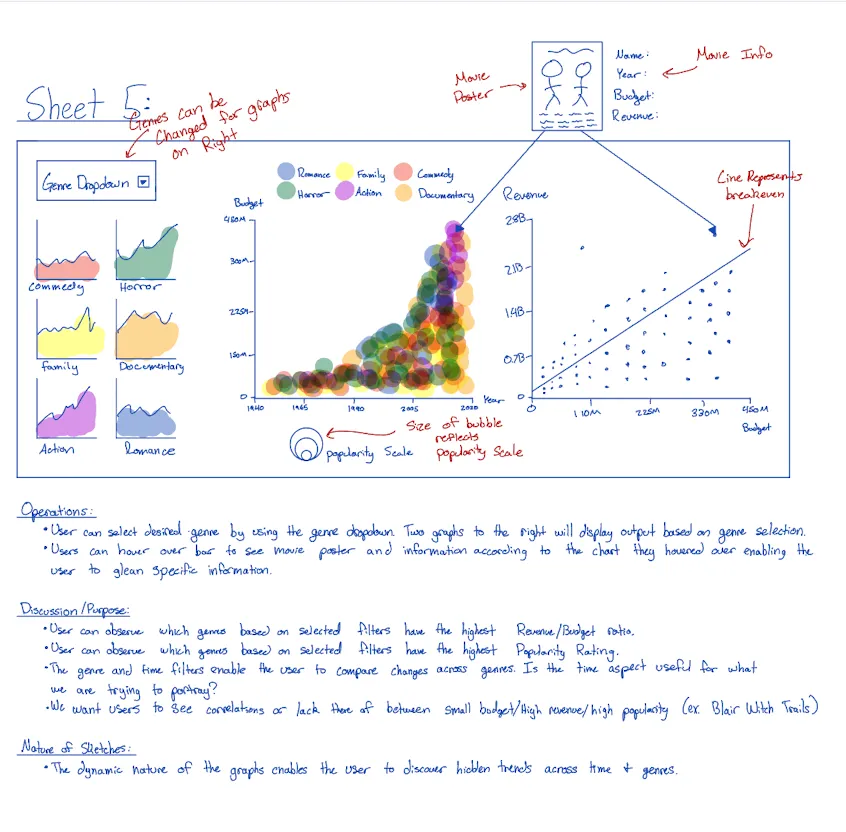 Sheet 5:
Genres can be
changed for graphs
on Right
Movie
Poster
Name:
Year:
Budget:
Revenue:
Movie Info
Genre Dropdown
Commedy
Horror
Family
Documentary
Action
Romance
Romance
Family
Commedy
Horror
Action
Documentary
Budget
450M
300M
225M
150M
0
1940
1965
1990
2005
2020
Year
popularity Scale
Size of bubble
reflects
popularity Scale
Revenue
2.8B
2.1B
1.4B
0.7B
0
0
110M
225M
330M
450M
Budget
Line Represents
breakeven
Operations:
• User can select desired genre by using the genre dropdown. Two graphs to the right will display output based on genre selection.
• Users can hover over bar to see movie poster and information according to the chart they hovered over enabling the
user to glean specific information.
Discussion/Purpose:
• User can observe which genres based on selected filters have the highest Revenue/Budget ratio.
• User can observe which genres based on selected filters have the highest Popularity Rating.
• The genre and time filters enable the user to compare changes across genres. Is the time aspect useful for what
we are trying to portray?
• We want users to see correlations or lack there of between small budget/high revenue/high popularity (ex. Blair Witch Trails)
Nature of Sketches:
• The dynamic nature of the graphs enables the user to discover hidden trends across time + genres.